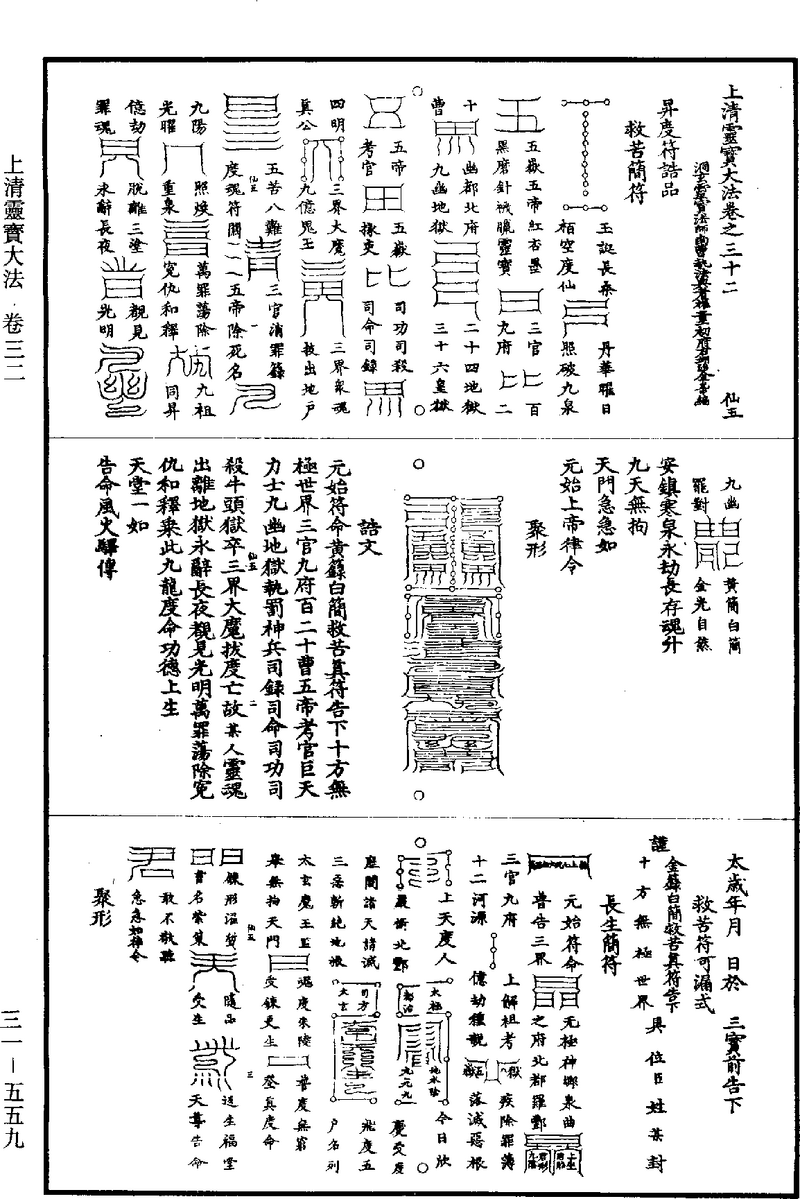 上清靈寶大法卷之三十二
仙五
昇度符誥品
救苦簡符
玉誕長桑
丹華曜日
栢空度仙
照破九泉
五嶽五帝紅杏墨
三官
百
黑磨針祴臘靈寶
九府
二
十
幽都北府
二十四地獄
曹
九幽地獄
三十六皇獄
五帝
五嶽
司功司殺
考官
掾吏
司命司錄
四明
三界大魔
三界衆魂
真公
九億鬼王
拔出地戶
五苦八難
三官消罪錄
度魂符關
五帝除死名
九陽
照煥
萬罪蕩除
九祖
光曜
重泉
寃仇和釋
同昇
億劫
脫離三塗
觀見
罪魂
永辭長夜
光明
九幽
黃簡白簡
罪對
金光自然
安鎮寒泉永劫長存魂升
九天無拘
天門急急如
元始上帝律令
聚形
誥文
元始符命黃籙白簡救苦真符告下十方無
極世界三官九府百二十曹五帝考官巨天
力士九幽地獄執罰神兵司錄司命司功司
殺牛頭獄卒三界大魔拔度亡故某人靈魂
出離地獄永辭長夜觀見光明萬罪蕩除寃
仇和釋乘此九龍度命功德上生
天堂一如
告命風火驛傳
太歲年月 日於 三寶前告下
救苦符可漏式
謹
金籙白簡救苦真符告下
十方無極世界 具位臣姓某封
長生簡符
元始符命
無極神鄉泉曲
普告三界
之府北都羅酆
三官九府
上解祖考
疾除罪簿
十二河源
億劫種親
落滅惡根
上天度人
今日欣
嚴衝北酆
慶受度
座閣諸天諸滅
飛度五
三惡斬絕地根
戶名列
太玄魔王監
魂度朱陵
普度無窮
舉無拘天門
受鍊更生
登真度命
鍊形溫質
隨品
送生福堂
書名紫策
受生
天尊告命
敢不敬聽
急急如律令
聚形
上清靈寶大法 · 卷三二
三一—五五九